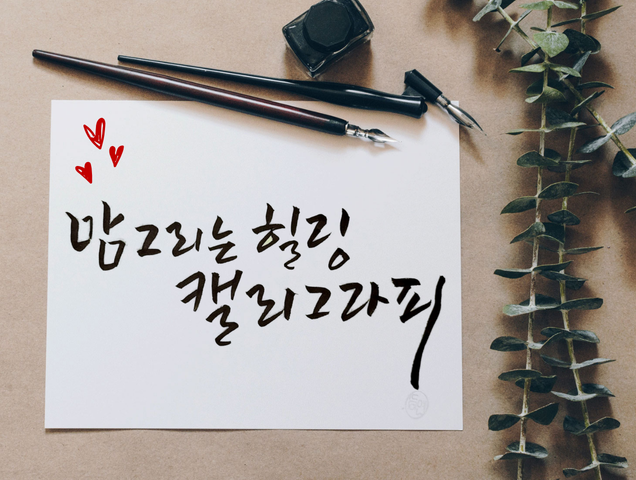 맘그리는 힐링
캘리그라피